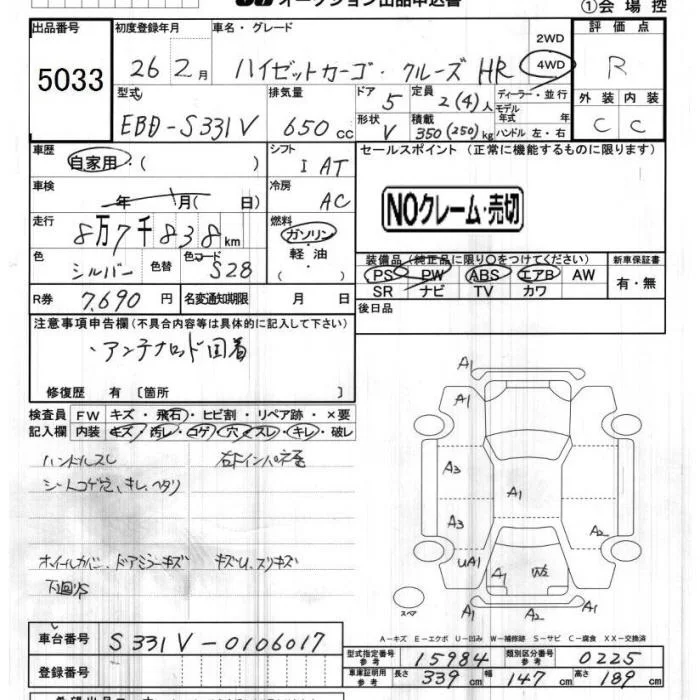 オークション出品申込書 ①会場控
出品番号 初度登録年月 車名・グレード 2WD 4WD 評価点
5033 26 2月 ハイゼットカーゴ・クルーズ HR R
型式 排気量 ドア 定員 ディーラー・並行 外装 内装
EBD-S331V 650cc 5 2(4)人 モデル年式 年 C C
形状 積載 ハンドル 左・右
V 350(250)kg
車歴 シフト セールスポイント(正常に機能するものに限ります)
自家用・( ) I AT
車検 冷房
年 月( 日) AC NOクレーム・売切
走行 燃料
8万7千838km ガソリン・軽油・( )
色 色替 色コード 装備品(純正品に限り○をつけてください) 新車保証書
シルバー S28 PS PW ABS エアB AW 有・無
SR ナビ TV カワ
R券 7,690円 名変通知期限 月 日 後日品
注意事項申告欄(不具合内容等は具体的に記入して下さい)
・アンテナロッド固着
修復歴 有〔箇所 〕
検査員 FW キズ・飛石・ヒビ割・リペア跡・×要
記入欄 内装 キズ・汚レ・コゲ・穴・スレ・キレ・破レ
ハンドルスレ
シートコゲ穴、キレ、ヘタリ
ホイールカバー、ドアミラーキズ キズU、スリキズ
下回りS
A1
A1 A1
A3 A1
A3 A2
UA1 A1 W2
A1 A2 A1
スペア
A-キズ E-エクボ U-凹み W-補修跡 S-サビ C-腐食 XX-交換済
車台番号 S331V-0106017
型式指定番号 参考 15984 類別区分番号 参考 0225
登録番号
車庫証明用 参考 長さ 339cm 幅 147cm 高さ 189cm